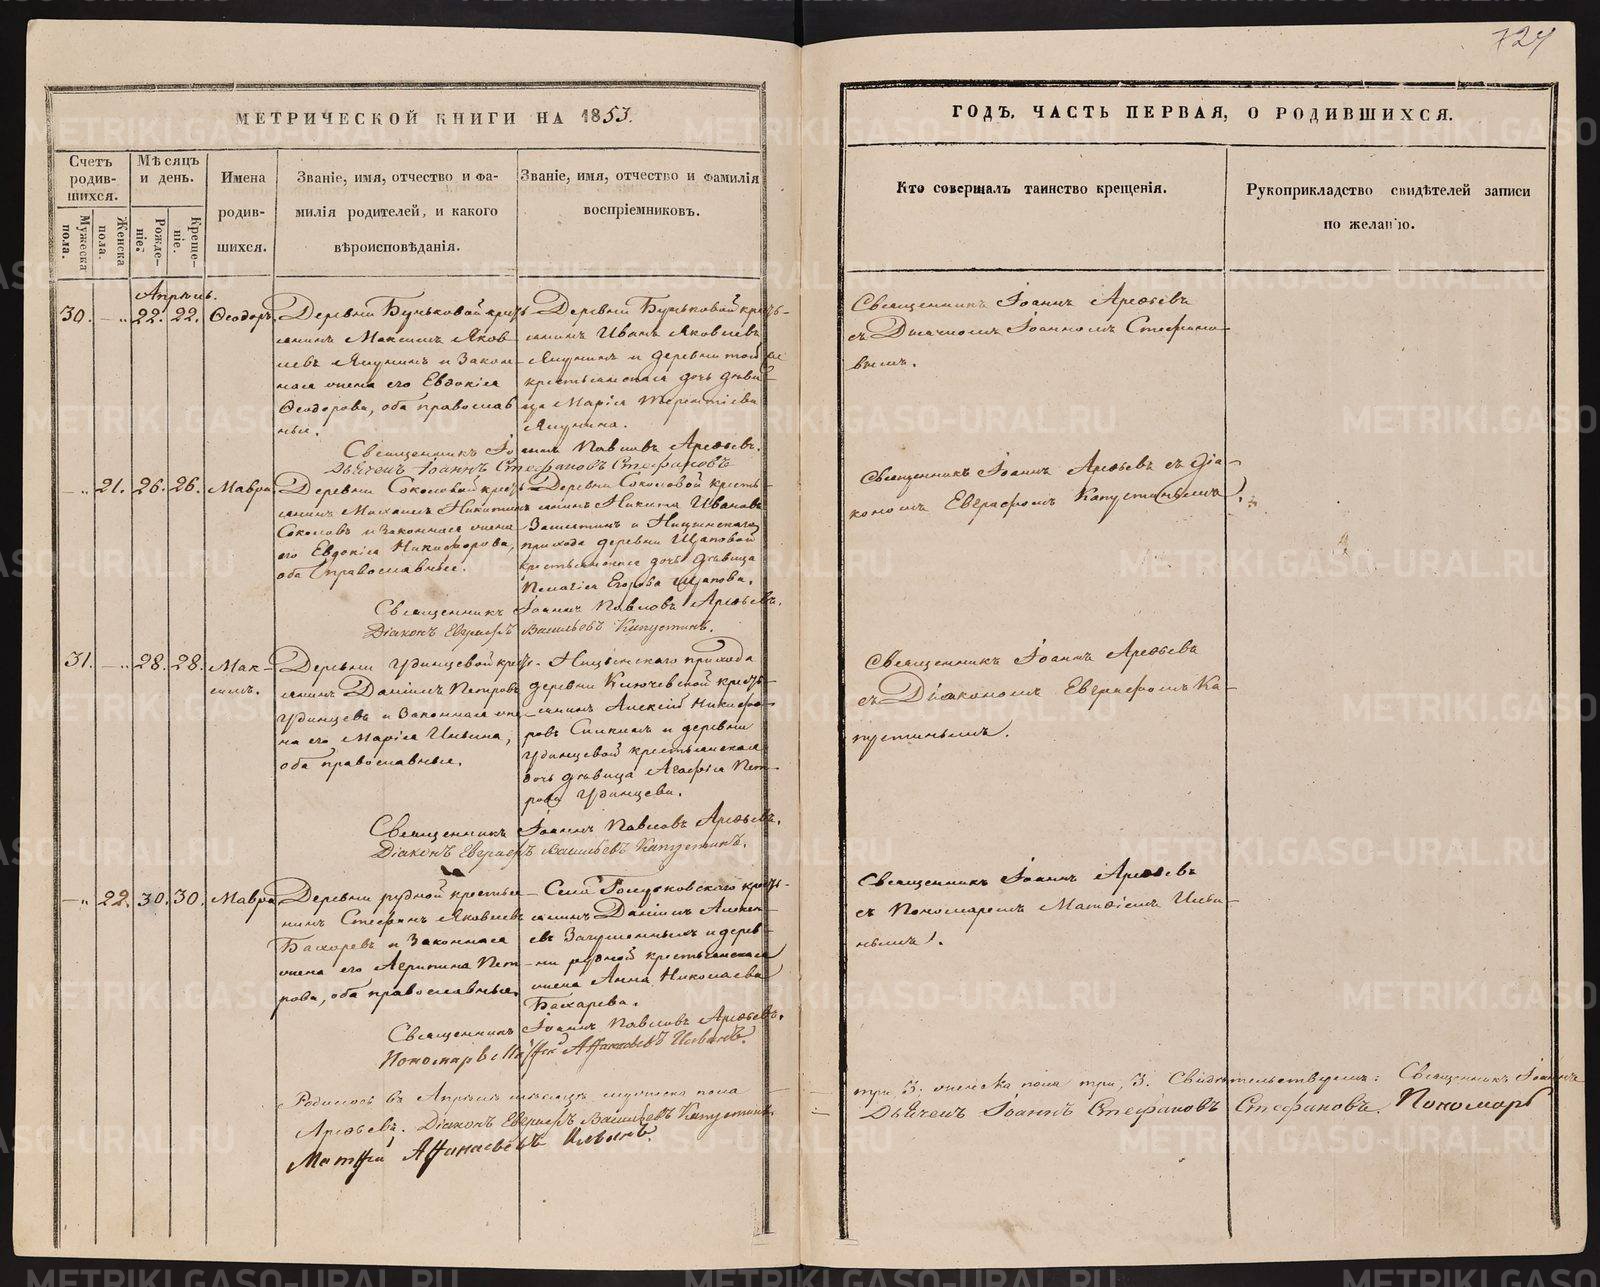 724
МЕТРИЧЕСКОЙ КНИГИ НА 1853.
Счетъ родив-шихся.
Мужеска пола.
Женска пола.
Мѣсяцъ и день.
Рожде-ніе.
Креще-ніе.
Имена
родив-
шихся.
Званіе, имя, отчество и фа-
милія родителей, и какого
вѣроисповѣданія.
Званіе, имя, отчество и фамилія
воспріемниковъ.
Апрѣль.
30. — „ 22. 22. Ѳеодоръ.
Деревни Буньковой кресть
янинъ Максимъ Яков
левъ Ялунинъ и закон
ная жена его Евдокія
Ѳеодорова, оба православ
ные.
Деревни Буньковой кресть-
янинъ Иванъ Яковлевъ
Ялунинъ и деревни той же
крестьянская дочь дѣви-
ца Марія Терентіева
Ялунина.
Священникъ Іоаннъ Павловъ Арефьевъ.
Дьячекъ Іоаннъ Стефановъ Стефановъ
— „ 21. 26. 26. Мавра
Деревни Соколовой кресть
янинъ Михаилъ Никитинъ
Соколовъ и законная жена
его Евдокія Никифорова,
оба православные.
Деревни Соколовой кресть-
янинъ Никита Ивановъ
и Ницинскаго
прихода деревни Щаповой
крестьянская дочь дѣвица
Пелагія Егорова Щапова.
Священникъ Іоаннъ Павловъ Арефьевъ.
Діаконъ Евграфъ Васильевъ Капустинъ.
31. — „ 28. 28. Мак-
симъ.
Деревни Удинцевой кресть-
янинъ Даніилъ Петровъ
Удинцевъ и законная же-
на его Марія Ильина,
оба православные.
Ницынскаго прихода
деревни Ключевской кресть-
янинъ Алексій Никифо-
ровъ и деревни
Удинцевой крестьянская
дочь дѣвица Агафія Пет-
рова Удинцева.
Священникъ Іоаннъ Павловъ Арефьевъ.
Діаконъ Евграфъ Васильевъ Капустинъ.
— „ 22. 30. 30. Мавра
Деревни Рудной крестья-
нинъ Стефанъ Яковлевъ
Бахаревъ и законная
жена его Агрипина Пет-
рова, оба православные.
Села кресть-
янинъ Даніилъ Алексе-
евъ и дерев-
ни Рудной крестьянская
жена Анна Николаева
Бахарева.
Священникъ Іоаннъ Павловъ Арефьевъ.
Пономарь Матѳій Аѳанасьевъ Ильинъ.
Родилось въ Апрѣлѣ мѣсяцѣ мужеска пола
Арефьевъ. Діаконъ Евграфъ Васильевъ Капустинъ
Матѳій Аѳанасьевъ Ильинъ.
ГОДЪ, ЧАСТЬ ПЕРВАЯ, О РОДИВШИХСЯ.
Кто совершалъ таинство крещенія.
Рукоприкладство свидѣтелей записи
по желанію.
Священникъ Іоаннъ Арефьевъ
съ Дьячкомъ Іоанномъ Стефано-
вымъ.
Священникъ Іоаннъ Арефьевъ съ Діа-
кономъ Евграфомъ Капустинымъ.
Священникъ Іоаннъ Арефьевъ
съ Діакономъ Евграфомъ Ка-
пустинымъ.
Священникъ Іоаннъ Арефьевъ
съ Пономаремъ Матѳіемъ Ильи-
нымъ.
три, 3. женска пола три, 3. Свидѣтельствуемъ: Священникъ Іоаннъ
Дьячекъ Іоаннъ Стефановъ Стефановъ. Пономарь
METRIKI.GASO-URAL.RU